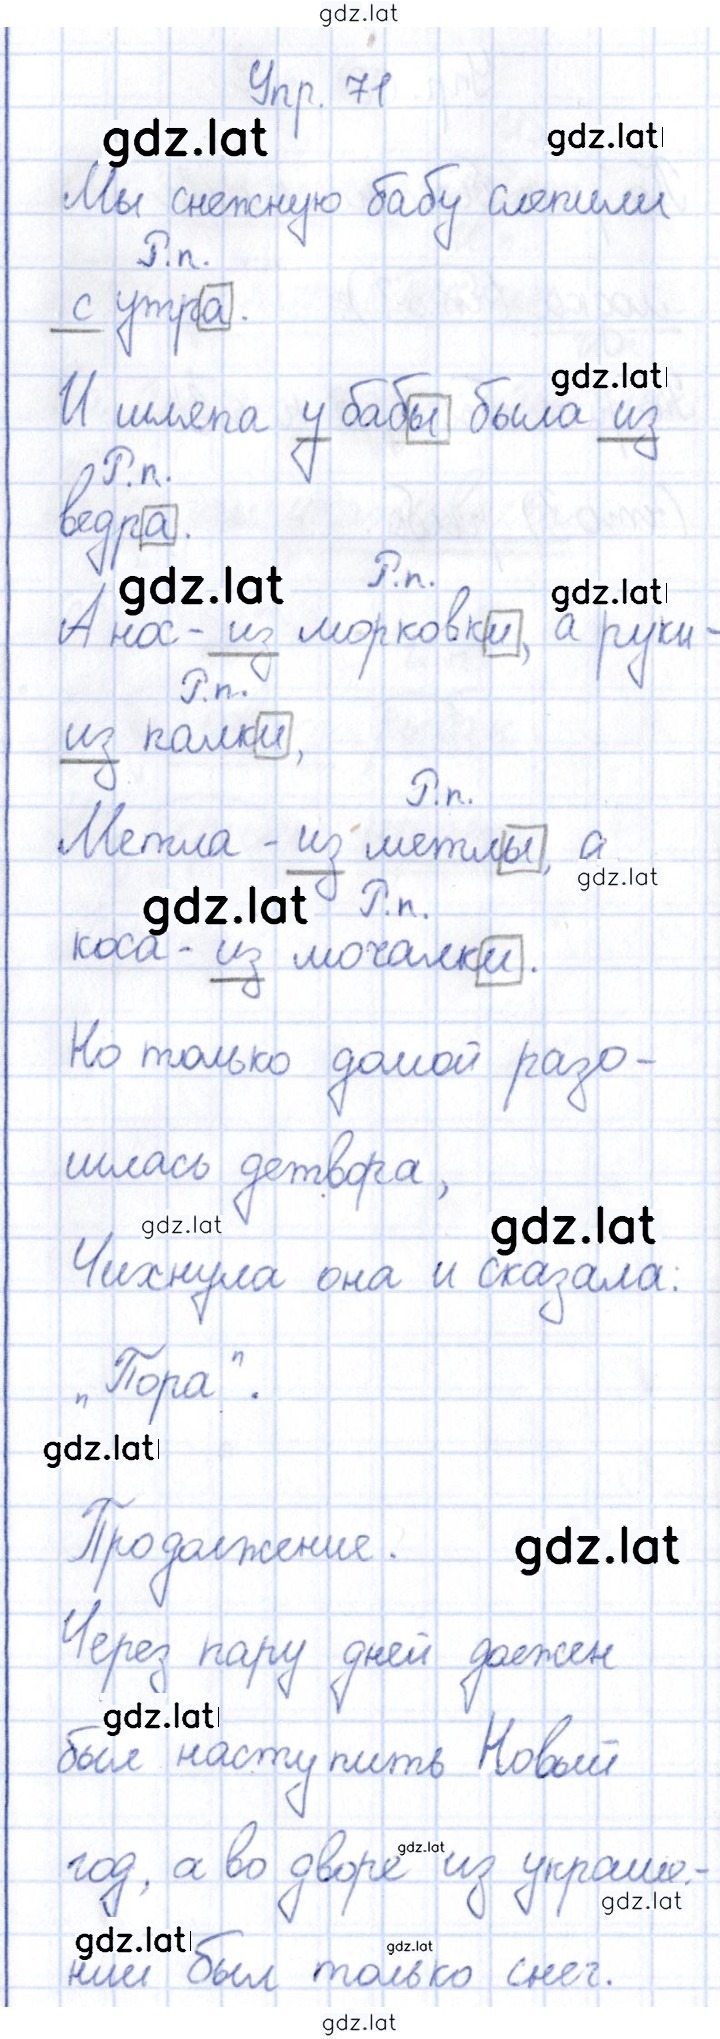 gdz.lat
Упр. 71
gdz.lat gdz.lat
Мы снежную бабу слепили
Р.п.
с утра.
gdz.lat
И шляпа у бабы была из
Р.п.
ведра.
gdz.lat Р.п. gdz.lat
А нос - из морковки, а руки -
Р.п.
из палки,
Р.п.
Метла - из метлы, а
gdz.lat
gdz.lat Р.п.
коса - из мочалки.
Но только домой разо-
шлась детвора,
gdz.lat gdz.lat
Чихнула она и сказала:
„Пора".
gdz.lat
Продолжение. gdz.lat
Через пару дней должен
gdz.lat
был наступить Новый
gdz.lat
год, а во дворе из украше-
gdz.lat
gdz.lat gdz.lat
нии был только снег.
gdz.lat